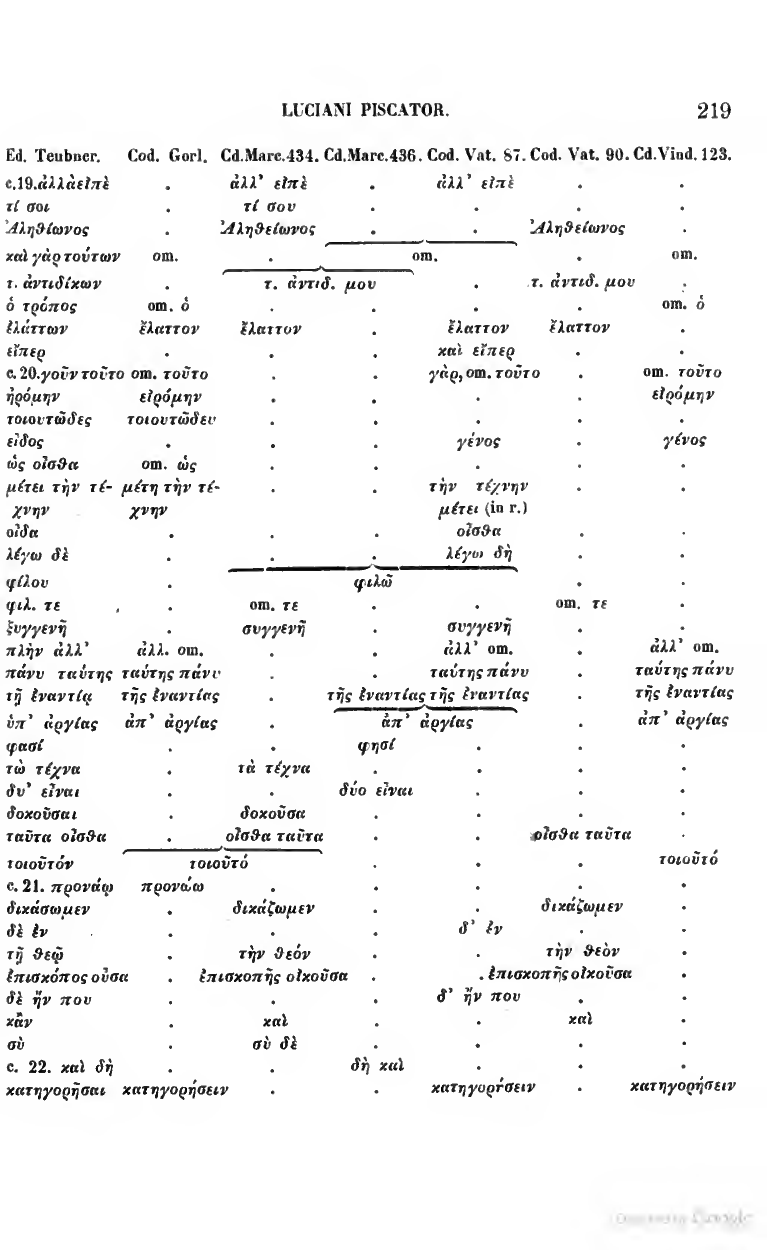 LUCIANI PISCATOR. 219
Ed. Teubner. Cod. Gorl. Cd.Marc.434. Cd.Marc.436. Cod. Vat. 87. Cod. Vat. 90. Cd.Vind. 123.
c.19.ἀλλὰεἰπὲ . ἀλλ’ εἰπὲ . ἀλλ’ εἰπὲ . .
τί σοι . τί σου . . . .
Ἀληθίωνος . Ἀληθείωνος . . Ἀληθείωνος .
καὶ γὰρ τούτων om. . om. . om.
τ. ἀντιδίκων . τ. ἀντιδ. μου . τ. ἀντιδ. μου .
ὁ τρόπος om. ὁ . . . . om. ὁ
ἐλάττων ἔλαττον ἔλαττον . ἔλαττον ἔλαττον .
εἴπερ . . . καὶ εἴπερ . .
c. 20.γοῦν τοῦτο om. τοῦτο . . γὰρ, om. τοῦτο . om. τοῦτο
ἠρόμην εἰρόμην . . . . εἰρόμην
τοιουτῶδες τοιουτῶδευ . . . . .
εἶδος . . . γένος . γένος
ὡς οἶσθα om. ὡς . . . . .
μέτει τὴν τέ- μέτη τὴν τέ- . . τὴν τέχνην . .
χνην χνην μέτει (in r.)
οἶδα . . . οἶσθα . .
λέγω δὲ . . . λέγω δὴ . .
φίλου . φιλῶ . .
φιλ. τε . om. τε . . om. τε .
ξυγγενῆ . συγγενῆ . συγγενῆ . .
πλὴν ἀλλ’ ἀλλ. om. . . ἀλλ’ om. . ἀλλ’ om.
πάνυ ταύτης ταύτης πάνυ . . ταύτης πάνυ . ταύτης πάνυ
τῇ ἐναντίᾳ τῆς ἐναντίας . τῆς ἐναντίας τῆς ἐναντίας . τῆς ἐναντίας
ὑπ’ ἀργίας ἀπ’ ἀργίας . ἀπ’ ἀργίας . ἀπ’ ἀργίας
φασί . . φησί . . .
τὼ τέχνα . τὰ τέχνα . . . .
δύ’ εἶναι . . δύο εἶναι . . .
δοκοῦσαι . δοκοῦσα . . . .
ταῦτα οἶσθα . οἶσθα ταῦτα . . οἶσθα ταῦτα .
τοιοῦτόν τοιοῦτό . . . τοιοῦτό
c. 21. προνάῳ προνώω . . . . .
δικάσωμεν . δικάζωμεν . . δικάζωμεν .
δὲ ἐν . . . δ’ ἐν . .
τῇ θεῷ . τὴν θεόν . . τὴν θεὸν .
ἐπισκόπος οὖσα . ἐπισκοπῆς οἰκοῦσα . . ἐπισκοπῆς οἰκοῦσα .
δὲ ἥν που . . . δ’ ἥν που . .
κἂν . καὶ . . καὶ .
σὺ . σὺ δὲ . . . .
c. 22. καὶ δὴ . . δὴ καὶ . . .
κατηγορῆσαι κατηγορήσειν . . κατηγορήσειν . κατηγορήσειν